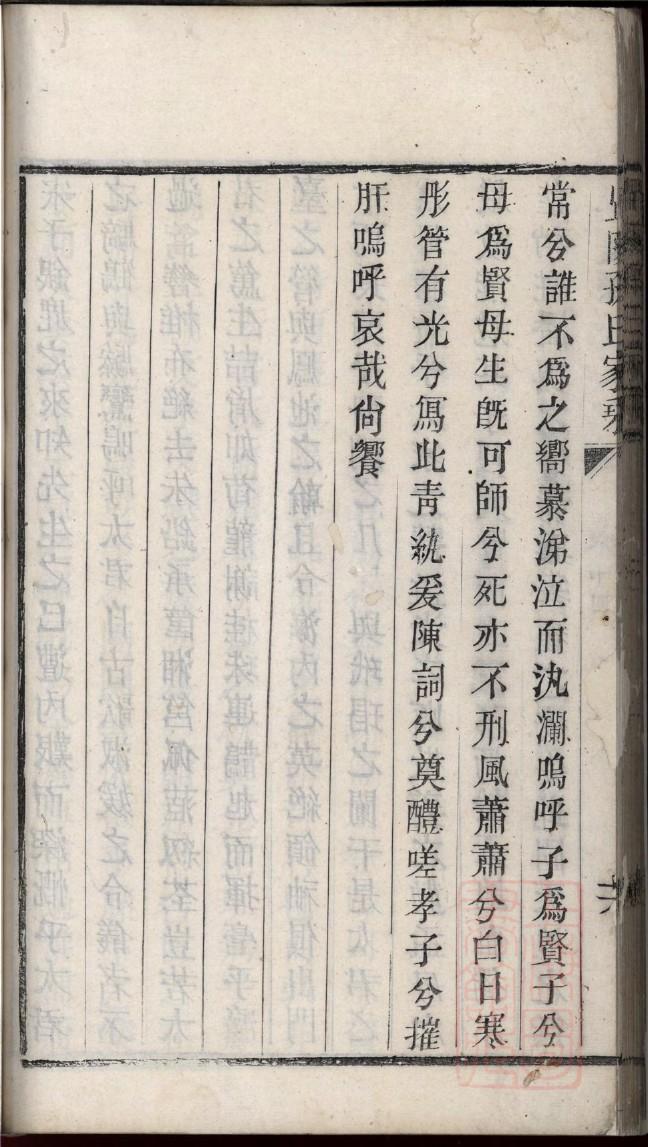 常兮誰不爲之嚮慕涕泣而汍瀾嗚呼子爲賢子兮
母爲賢母生旣可師兮死亦不刑風蕭蕭兮白日寒
彤管有光兮寫此靑紈爰陳詞兮奠醴嗟孝子兮摧
肝嗚呼哀哉尙饗
孫氏家乘
六